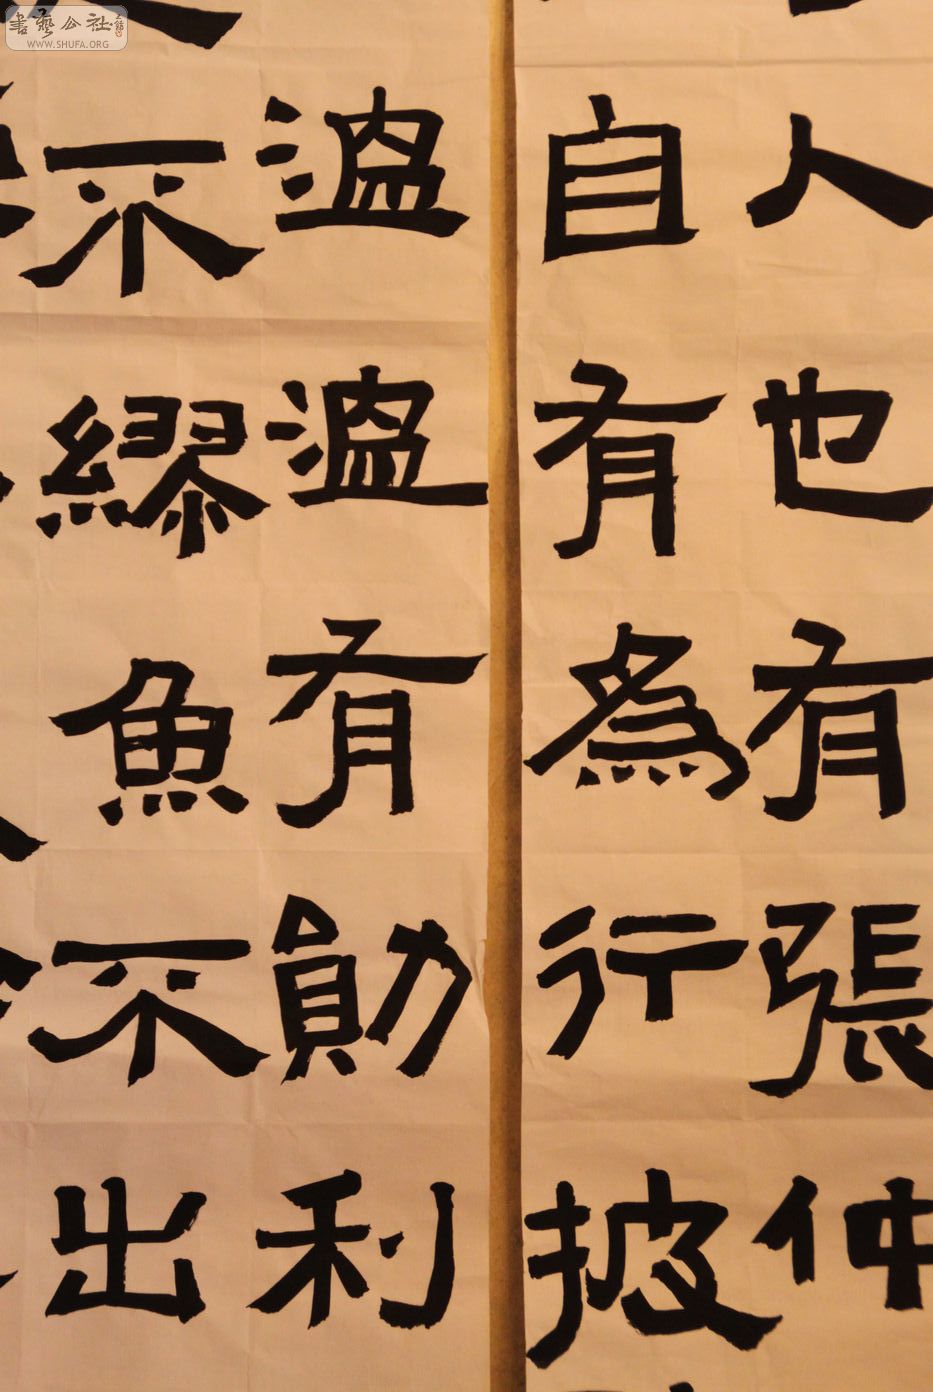 人也有張仲
自有為行披
溫溫有勛利
不繆魚不出
書藝公社
WWW.SHUFA.ORG